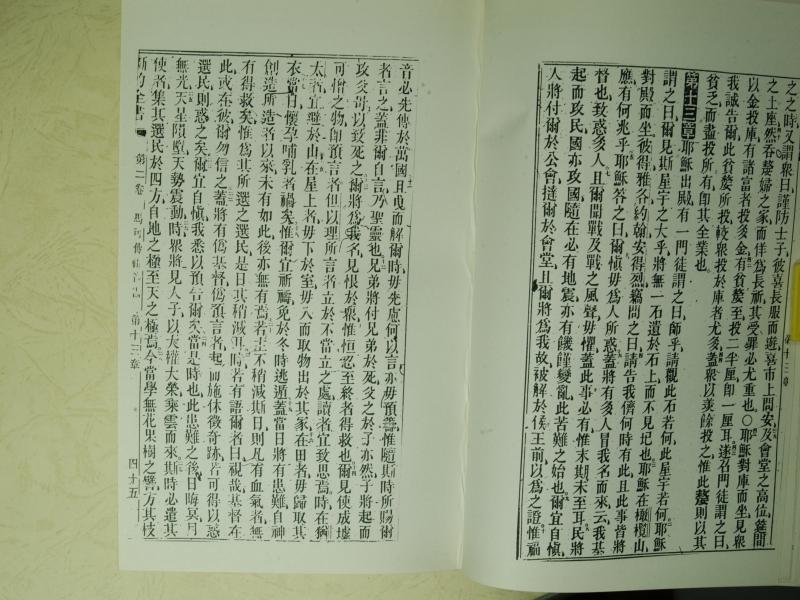 之之時又謂衆曰謹防士子彼喜長服而遊喜市上問安及會堂之高位筵間
之上座然吞嫠婦之家而佯為長祈其受罪必尤重也○耶穌對庫而坐見衆
以金投庫有諸富者投多金有貧嫠至投二半厘即一厘耳遂召門徒謂之曰
我誠告爾此貧嫠所投較衆投於庫者尤多蓋衆以羨餘投之惟此嫠則以其
貧乏而盡投所有即其全業也
第十三章耶穌出殿有一門徒謂之曰師乎請觀此石若何此室宇若何耶穌
謂之曰爾見斯室宇之大乎將無一石遺於石上而不見圮也耶穌在橄欖山
對殿而坐彼得雅各約翰安得烈竊問之曰請告我儕何時有此且此事皆將
應有何兆乎耶穌答之曰爾慎毋為人所惑蓋將有多人冒我名而來云我基
督也致惑多人且爾聞戰及戰之風聲毋懼蓋此事必有惟末期未至耳民將
起而攻民國亦攻國隨在必有地震亦有饑饉變亂此苦難之始也爾宜自慎
人將付爾於公會撻爾於會堂且爾將為我故被解於侯王前以為之證惟福
音必先傳於萬國且曳而解爾時毋先慮何以言亦毋預籌惟隨斯時所賜爾
者言之蓋非爾自言乃聖靈也兄弟將付兄弟於死父之於子亦然子將起而
攻父母以致死之爾將為我名見恨於衆惟恒忍至終者得救也爾見使成墟
可憎之物即預言者但以理所言者立於不當立之處讀者宜致思焉時在猶
太者宜避於山在屋上者毋下於室毋入而取物出於其家在田者毋歸取其
衣當日懷孕哺乳者禍矣惟爾宜祈禱免於冬時逃遁蓋當日將有患難自神
創造所造者以來未有如此後亦無有焉若主不稍減斯日則凡有血氣者無
有得救矣惟為其所選之選民是日其稍減乎時若有語爾者曰視哉基督在
此或在彼爾勿信之蓋將有偽基督偽預言者起而施休徵奇跡若可得以惑
選民則惑之矣爾宜自慎我悉以預告爾矣當是時也此患難之後日晦冥月
無光天星隕墜天勢震動時衆將見人子以大權大榮乘雲而來斯時必遣其
使者集其選民於四方自地之極至天之極焉今當學無花果樹之譬方其枝
新約全書 第二卷 馬可傳福音書 第十三章 四十五